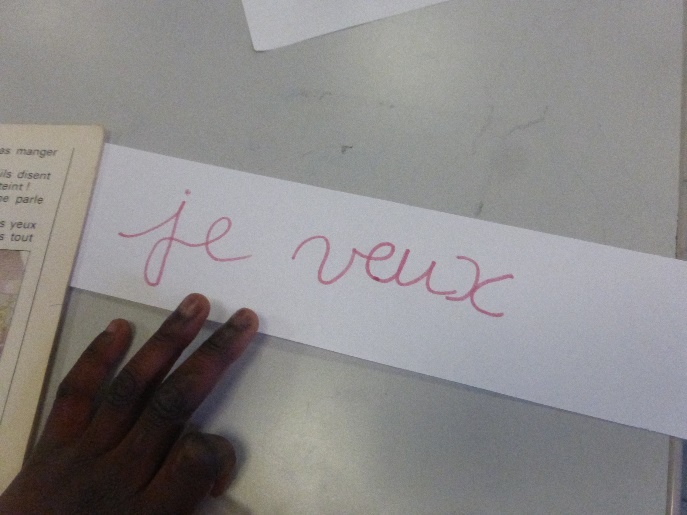 as manger
ils disent
teint !
ne parle
s yeux
s tout
je veux